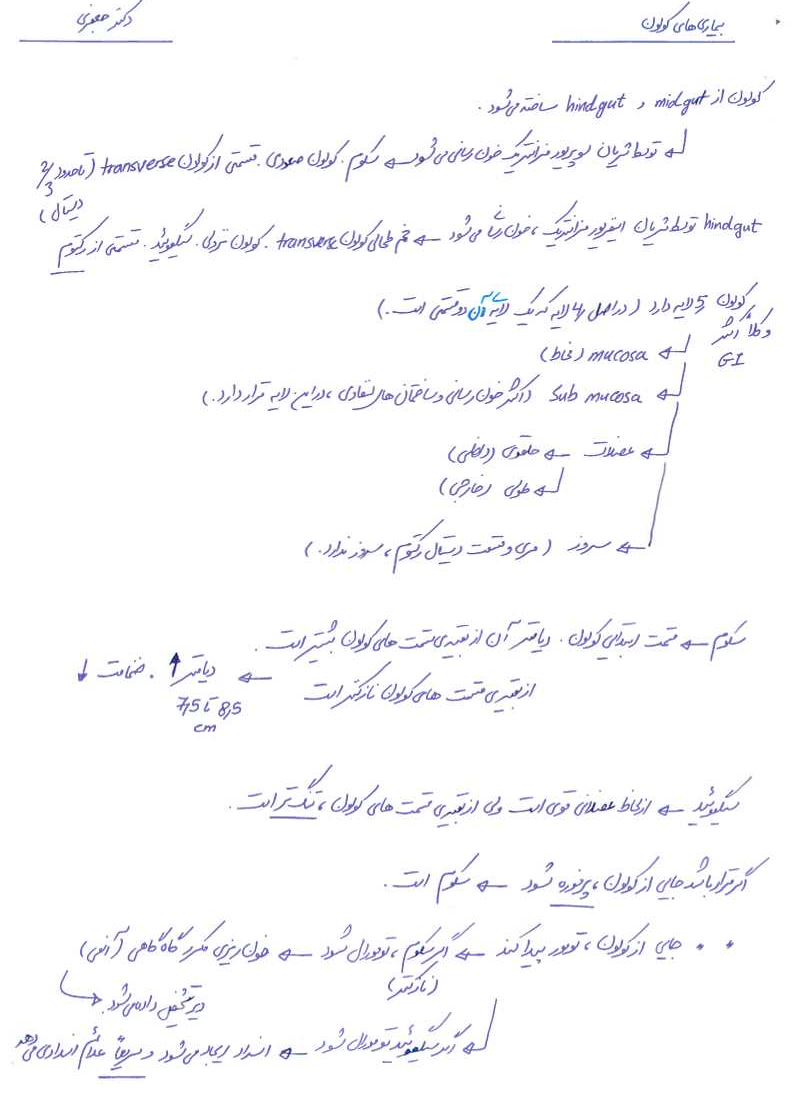 بیماری‌های کولون
دکتر جعفری
کولون از midgut و hindgut ساخته می‌شود.
توسط شریان سوپریور مزانتریک خون رسانی می‌شود ← سکوم. کولون صعودی. قسمتی از کولون transverse (تا حدود 2/3
دیستال)
hindgut توسط شریان اینفریور مزانتریک، خون رسانی می‌شود ← خم طحالی کولون transverse. کولون نزولی. سیگموئید. قسمتی از رکتوم
کولون 5 لایه دارد (در اصل 4 لایه که یک لایه‌ی آن دو قسمتی است.)
و کلاً اکثر
GI
← mucosa (مخاط)
← Sub mucosa (اکثر خون رسانی و ساختمان های لنفاوی، در این لایه قرار دارد.)
← عضلات ← حلقوی (داخلی)
← طولی (خارجی)
← سروز (مری و قسمت دیستال رکتوم، سروز ندارد.)
سکوم ← قسمت ابتدایی کولون. دیامتر آن از بقیه‌ی قسمت های کولون بیشتر است.
از بقیه‌ی قسمت های کولون نازکتر است ← دیامتر ↑. ضخامت ↓
7,5 تا 8,5
cm
سیگموئید ← از لحاظ عضلانی قوی است ولی از بقیه‌ی قسمت های کولون، تنگ تر است.
اگر قرار باشد جایی از کولون، پرفوره شود ← سکوم است.
** جایی از کولون، تومور پیدا کند ← اگر سکوم، تومورال شود ← خون ریزی مکرر گاه گاهی (آنمی)
(نازکتر)
دیر تشخیص داده می‌شود.
← اگر سیگموئید تومورال شود ← انسداد ایجاد می‌شود و سریعاً علائم انسدادی می‌دهد